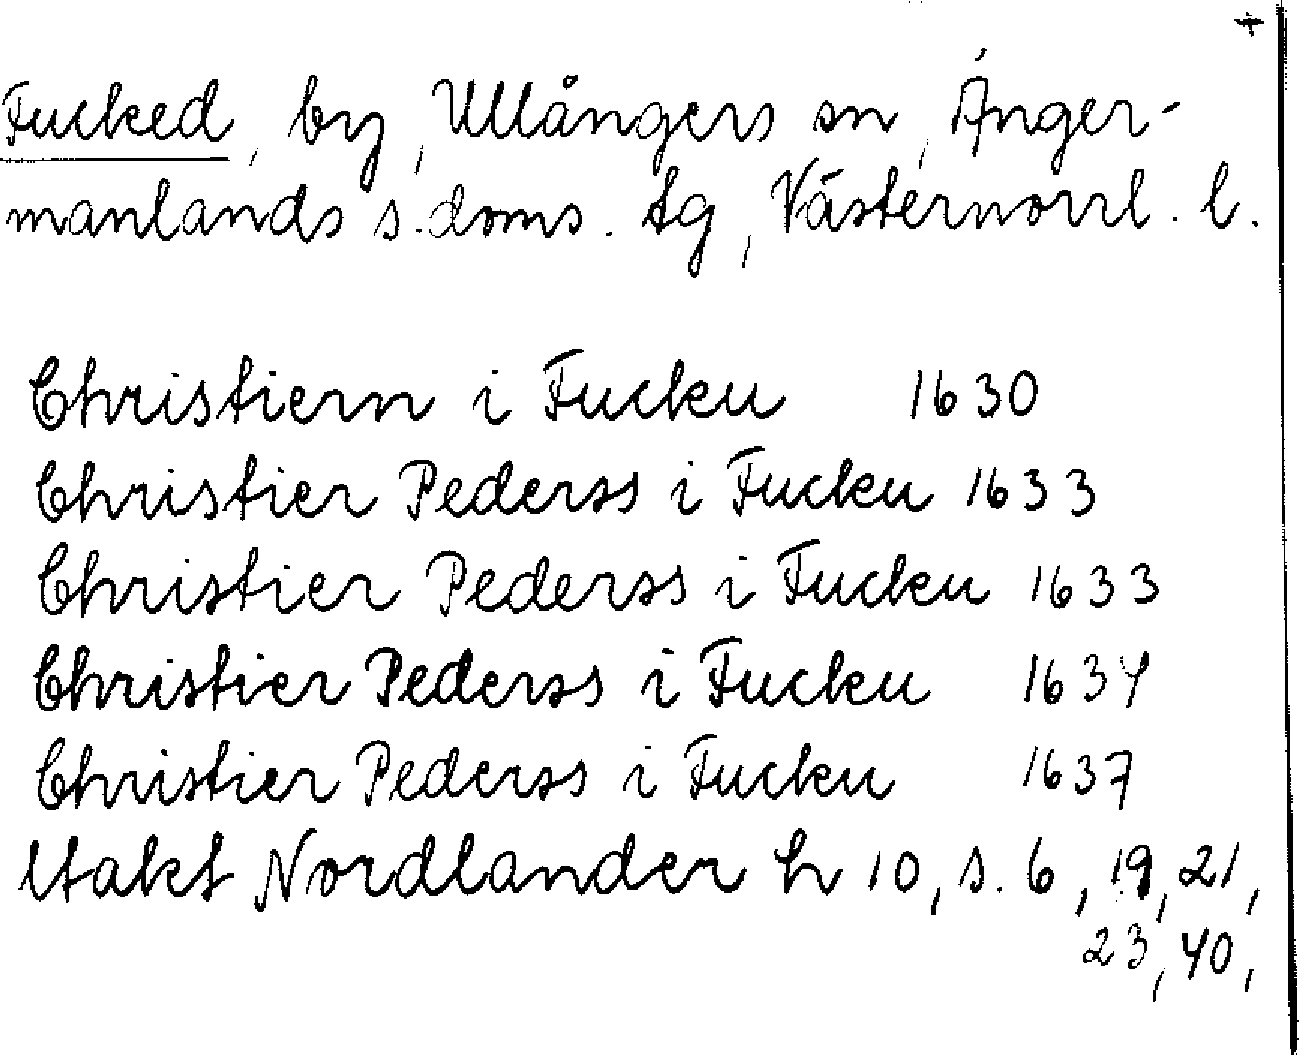 +
Fucked, by, Ullångers sn, Ånger-
manlands s. doms. tg, Västernorrl. l.
Christiern i Fucku 1630
Christier Pederss i Fucku 1633
Christier Pederss i Fucku 1633
Christier Pederss i Fucku 1634
Christier Pederss i Fucku 1637
Utakt Nordlander h 10, s. 6, 19, 21,
23, 40,